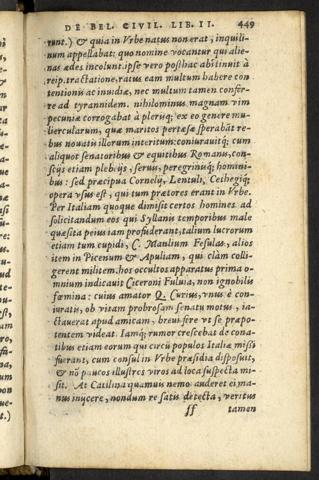 DE BEL. CIVIL. LIB. II. 449
runt.) & quia in Vrbe natus non erat, inquili-
num appellabat: quo nomine vocantur qui alie-
nas ædes incolunt. ipse vero posthac abstinuit à
reip. tractatione, ratus eam multum habere con
tentionis ac inuidiæ, nec multum tamen confer-
re ad tyrannidem. nihilominus magnam vim
pecuniæ corrogabat à plerisq; ex eo genere mu-
liercularum, quæ maritos pertæsæ sperabāt re-
bus nouatis illorum interitum: coniurauitq́; cum
aliquot senatoribus & equitibus Romanis, con-
scijs etiam plebeijs, seruis, peregrinisq́; homini-
bus: sed præcipua Cornelij, Lentuli, Cethegiq́;
opera vsus est, qui tum prætores erant in Vrbe.
Per Italiam quoque dimisit certos homines ad
solicitandum eos qui Syllanis temporibus male
quæsita peius iam profuderant, talium lucrorum
etiam tum cupidi, C. Manlium Fesulas, alios
item in Picenum & Apuliam, qui clàm colli-
gerent militem. hos occultos apparatus primo o-
mnium indicauit Ciceroni Fuluia, non ignobilis
fœmina: cuius amator Q. Curius, vnus è con-
iuratis, ob vitam probrosam senatu motus, ia-
ctauerat apud amicam, breui fore vt se præpo-
tentem videat. Iamq́; rumor crescebat de cona-
tibus etiam eorum qui circū populos Italiæ missi
fuerant, cum consul in Vrbe præsidia disposuit,
& nō paucos illustres viros ad loca suspecta mi-
sit. At Catilina quamuis nemo auderet ei ma-
nus inycere, nondum re satis detecta, veritus
ff tamen